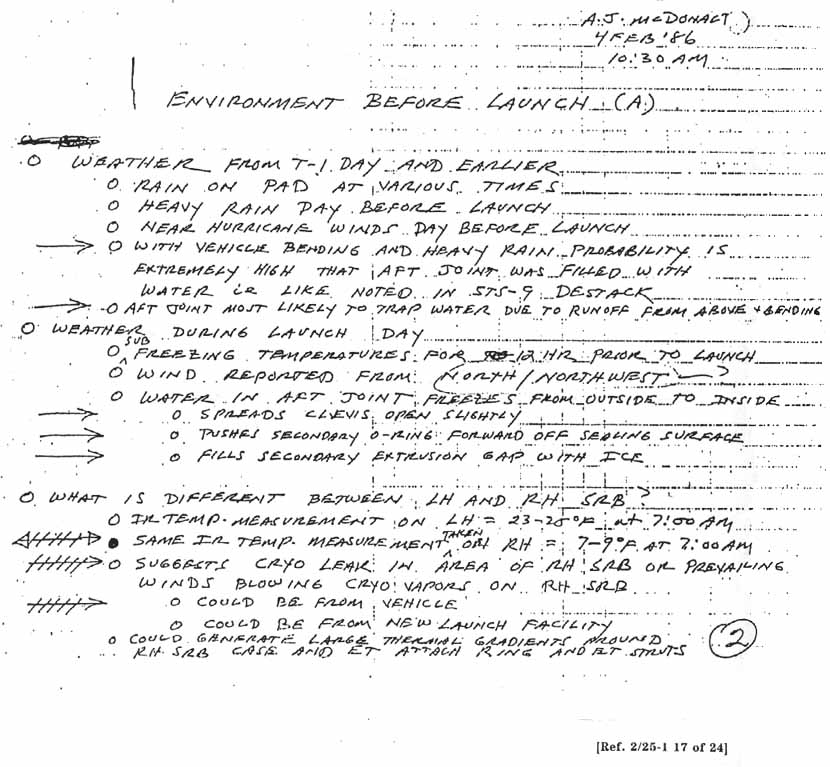 A.J. McDONALD
4 FEB '86
10:30 AM
ENVIRONMENT BEFORE LAUNCH (A)
O WEATHER FROM T-1 DAY AND EARLIER
O RAIN ON PAD AT VARIOUS TIMES
O HEAVY RAIN DAY BEFORE LAUNCH
O NEAR HURRICANE WINDS DAY BEFORE LAUNCH
→ O WITH VEHICLE BENDING AND HEAVY RAIN PROBABILITY IS
EXTREMELY HIGH THAT AFT JOINT WAS FILLED WITH
WATER LIKE NOTED IN STS-9 DESTACK
→ O AFT JOINT MOST LIKELY TO TRAP WATER DUE TO RUNOFF FROM ABOVE + BENDING
O WEATHER DURING LAUNCH DAY
O SUB FREEZING TEMPERATURES FOR 12 HR PRIOR TO LAUNCH
O WIND REPORTED FROM NORTH/NORTHWEST ?
O WATER IN AFT JOINT FREEZES FROM OUTSIDE TO INSIDE
→ O SPREADS CLEVIS OPEN SLIGHTLY
→ O PUSHES SECONDARY O-RING FORWARD OFF SEALING SURFACE
→ O FILLS SECONDARY EXTRUSION GAP WITH ICE
O WHAT IS DIFFERENT BETWEEN LH AND RH SRB ?
O IR TEMP. MEASUREMENT ON LH = 23-25°F at 7:00 AM
● SAME IR TEMP. MEASUREMENT TAKEN ON RH = 7-9°F AT 7:00 AM
→ O SUGGESTS CRYO LEAK IN AREA OF RH SRB OR PREVAILING
WINDS BLOWING CRYO VAPORS ON RH SRB
→ O COULD BE FROM VEHICLE
O COULD BE FROM NEW LAUNCH FACILITY
O COULD GENERATE LARGE THERMAL GRADIENTS AROUND
RH SRB CASE AND ET ATTACH RING AND ET STRUTS
2
[Ref. 2/25-1 17 of 24]